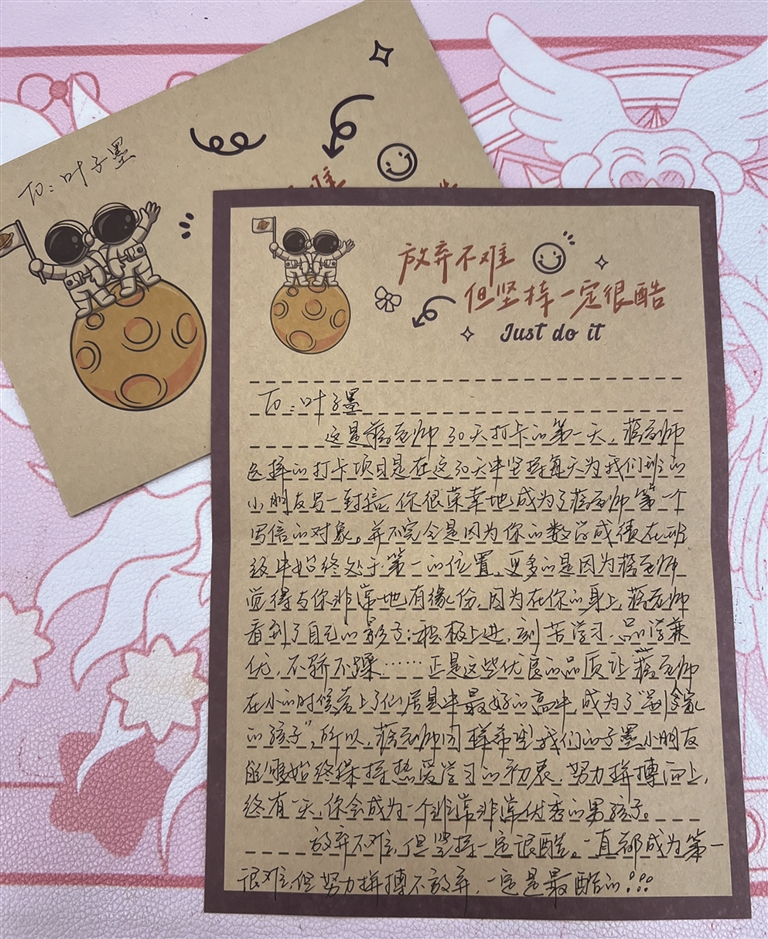 To：叶子墨
放弃不难
但坚持一定很酷
Just do it
To：叶子墨
这是蒋老师30天打卡的第一天，蒋老师
选择的打卡项目是在这30天中坚持每天为我们班的
小朋友写一封信。你很荣幸地成为了蒋老师第一个
写信的对象。并不完全是因为你的数学成绩在班
级中始终处于第一的位置，更多的是因为蒋老师
觉得与你非常地有缘份，因为在你的身上，蒋老师
看到了自己的影子：积极上进，刻苦学习，品学兼
优，不骄不躁……正是这些优良的品质让蒋老师
在小的时候考上了仙居县中最好的高中，成为了“别人家
的孩子”，所以，蒋老师同样希望我们的子墨小朋友
能够始终保持热爱学习的初衷，努力拼搏向上，
终有一天，你会成为一个非常非常优秀的男孩子。
放弃不难，但坚持一定很酷。一直都成为第一
很难，但努力拼搏不放弃，一定是最酷的！！！